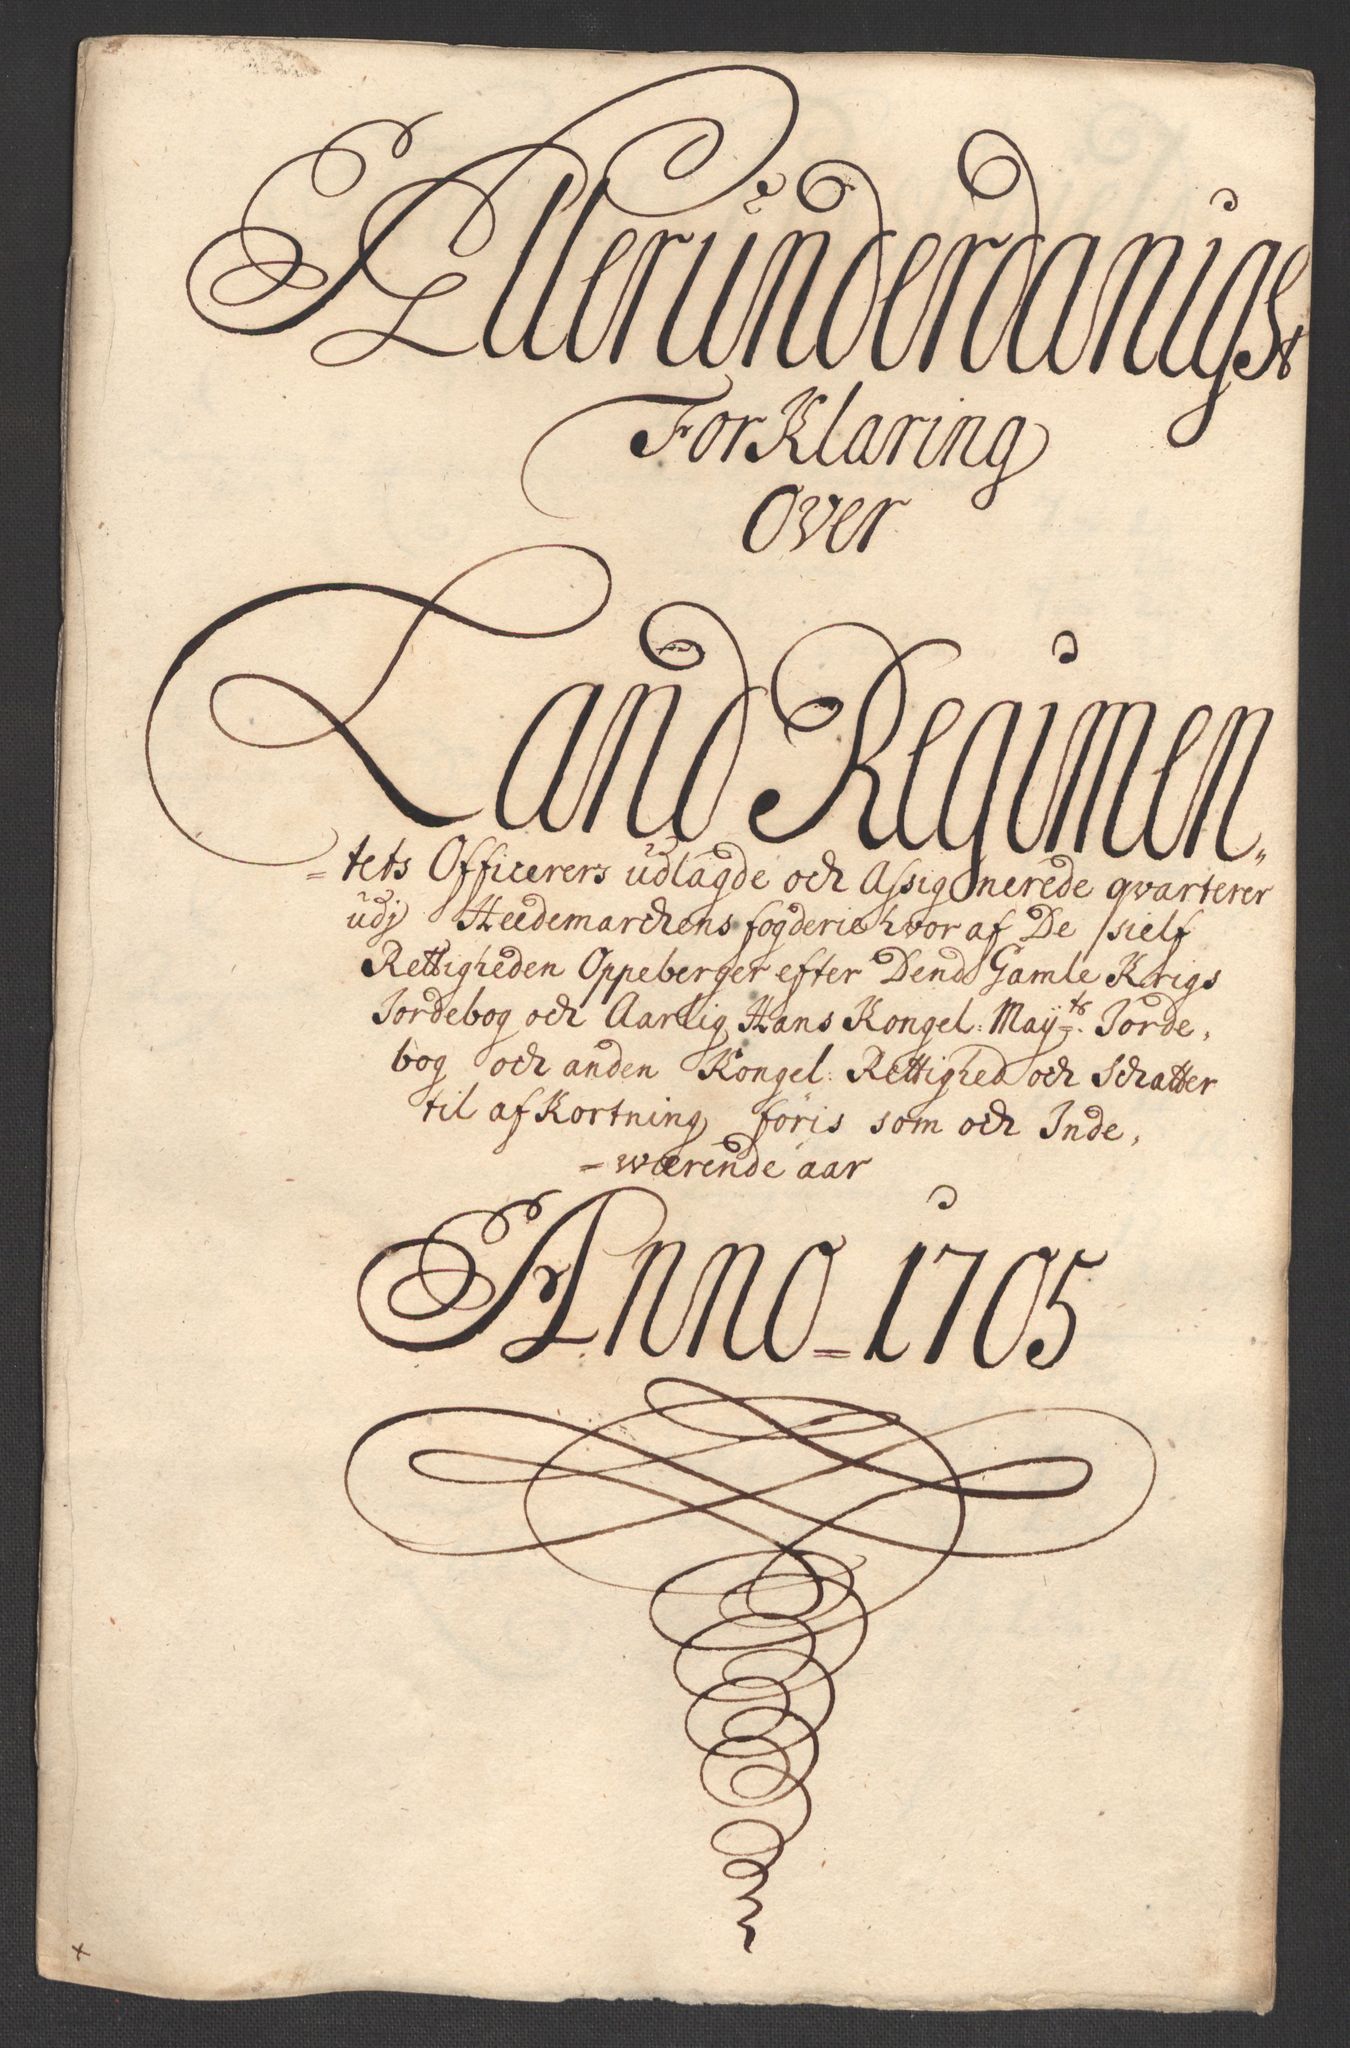 Alleründerdanigst
ForKlaring
Over
Land Regimen„
=tets Officerers udlagde och Assignerede qvarterer
udj Heedemarchens fogderie hvor af De sielf
Rettigheden Oppeberger efter Dend Gamle Krigs
Jordebog och Aarlig Hans Kongel: Mayts: Jorde,
bog och anden Kongel: Rettighed och Schatter
til afKortning föris som och Inde,
=wærende aar
Anno=1705